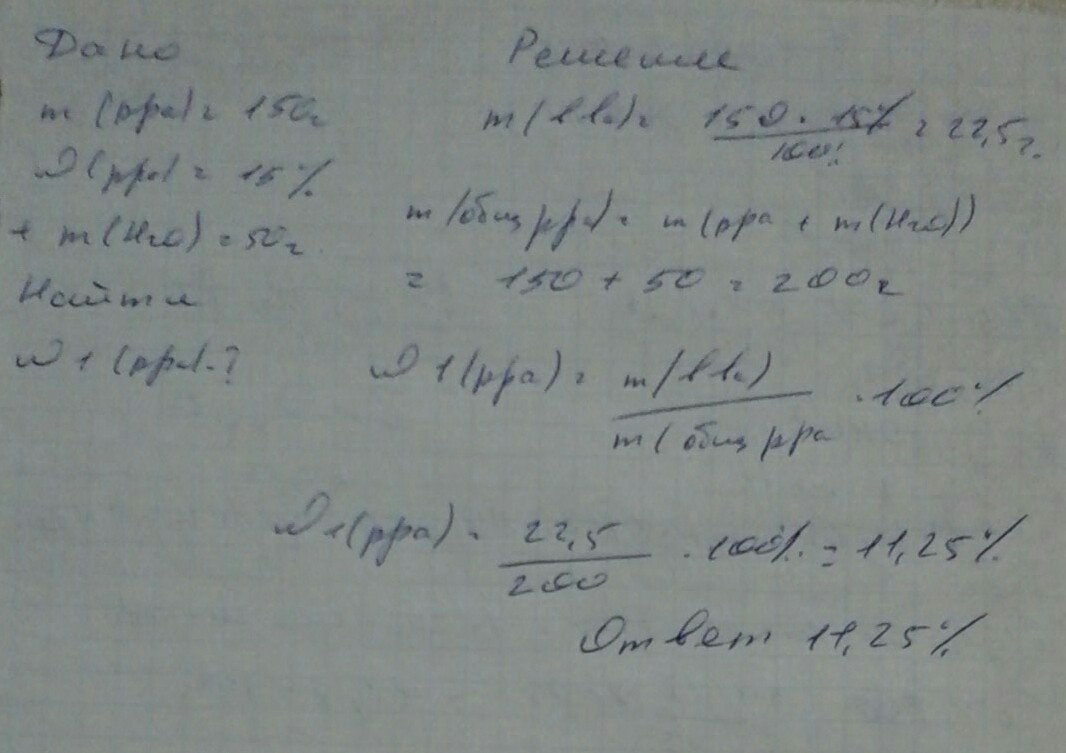 Дано
m (рра) = 150г
ω(рра) = 15%
+ m(H2O) = 50г
Найти
ω1(рра)-?
Решение
m(в ва) = 150 · 15% / 100% = 22,5г.
m(общ рра) = m(рра + m(H2O))
= 150 + 50 = 200г
ω1(рра) = m(в ва) / m(общ рра · 100%
ω1(рра) = 22,5 / 200 · 100% = 11,25%
Ответ 11,25%